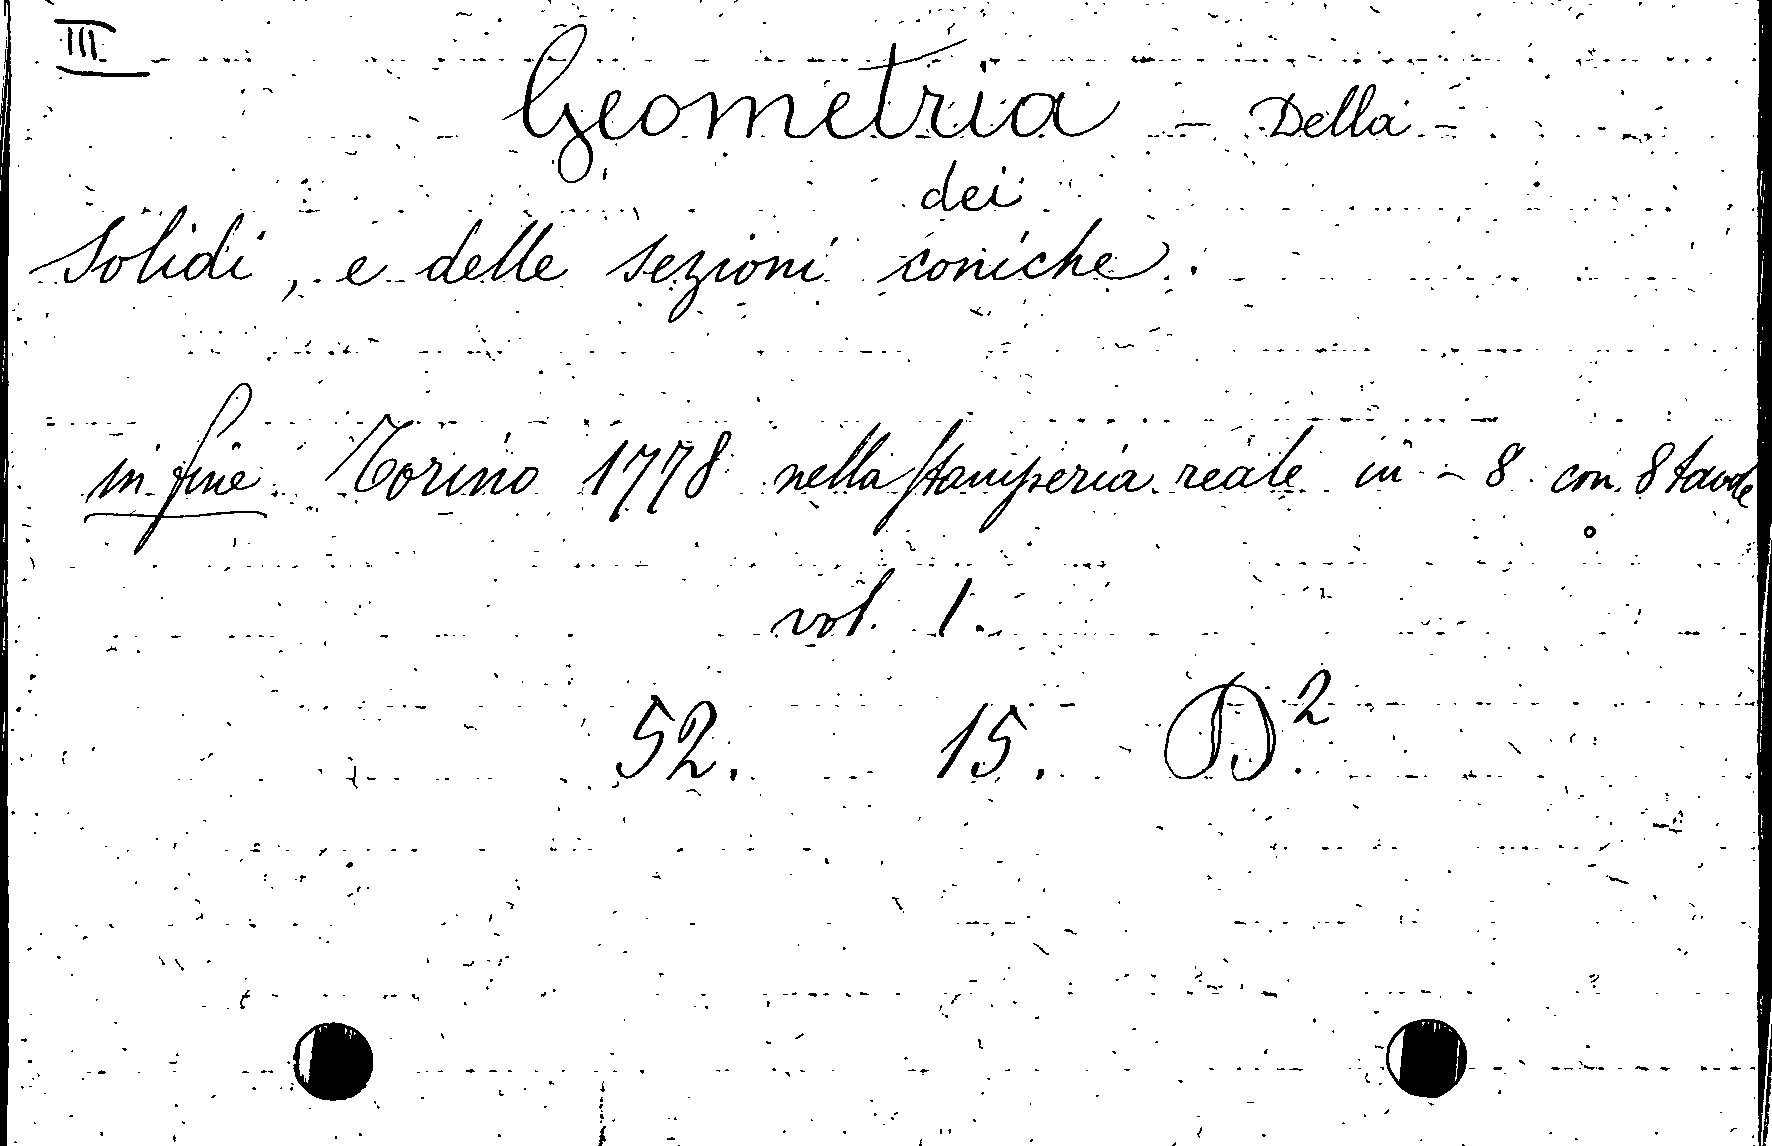 III
Geometria - Della -
dei
Solidi, e delle sezioni coniche.
in fine Torino 1778 nella Stamperia reale in - 8 con 8 tavole
vol. 1.
52. 15. D².